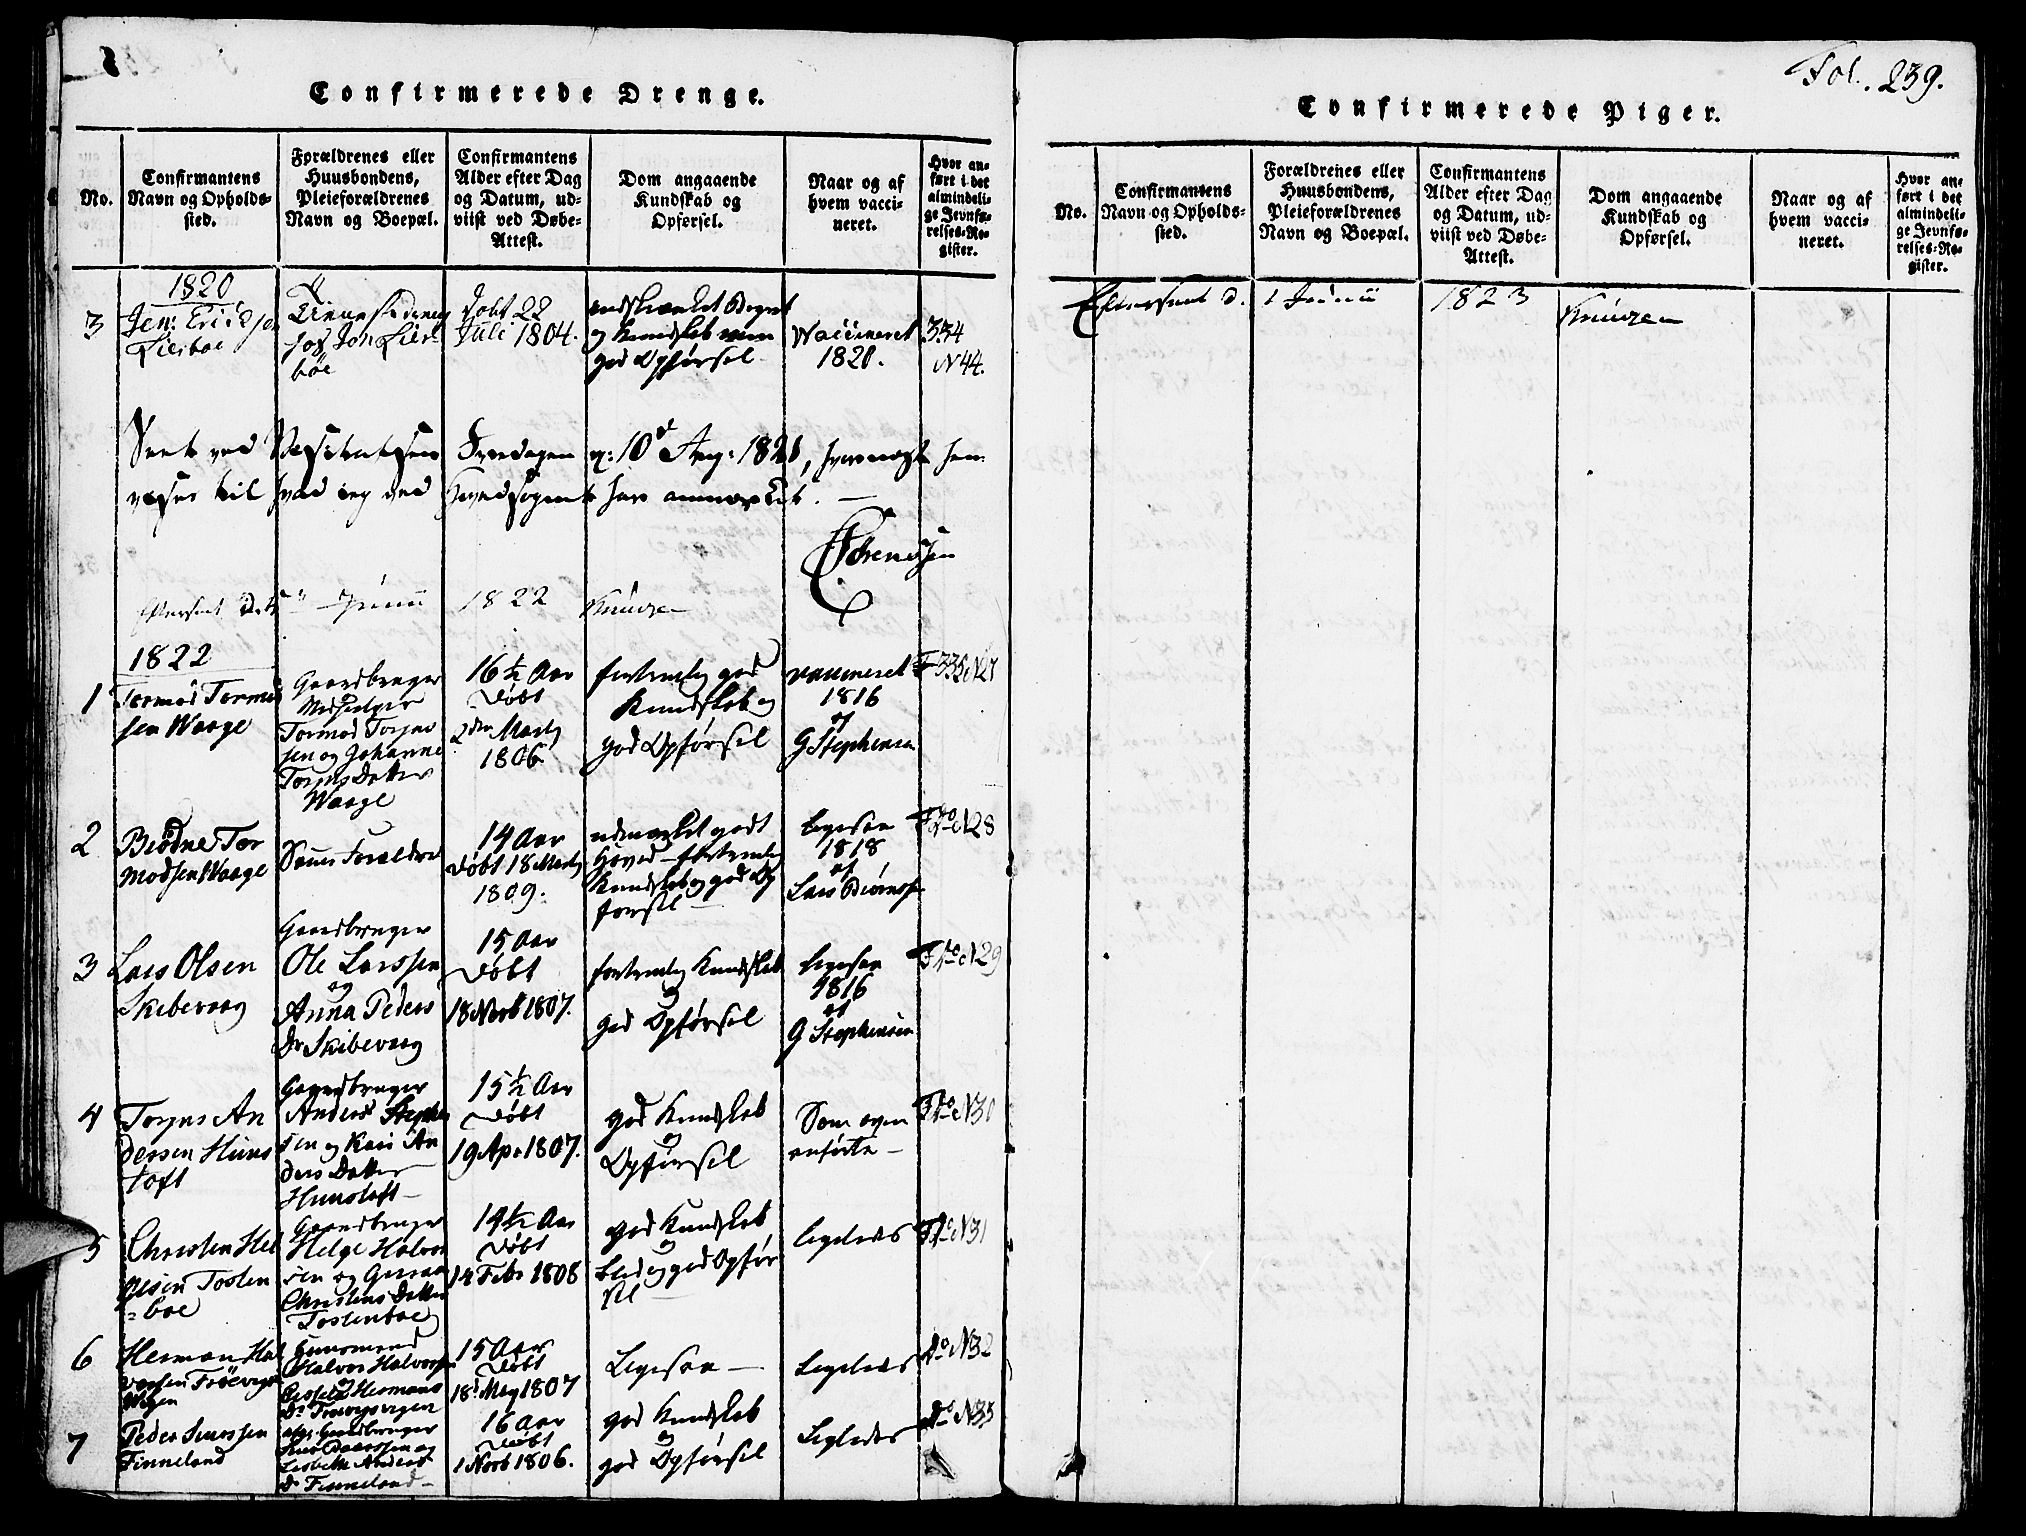 Confirmerede Drenge.
No.
Confirmantens
Navn og Opholds-
sted.
Forældrenes eller
Huusbondens,
Pleieforældrenes
Navn og Boepæl.
Confirmantens
Alder efter Dag
og Datum, ud-
viist ved Døbe-
Attest.
Dom angaaende
Kundskab og
Opførsel.
Naar og af
hvem vacci-
neret.
Hvor an-
ført i det
almindeli-
ge Jevnfø-
relses-Re-
gister.
1820
3
Lierboe
Jon Lier
boe
døbt 22
Juli 1804.
og Kundskab
god Opførsel
Vaccineret
1820.
334
N 44.
Seet ved Visitatsen Fredagen d: 10d Aug: 1821,
viser til hvad jeg ved Hovedsognet har anmærket. —
Sørensen
Efterseet 1822
1822
1
Tormod Tormod
sen Waage
Gaardbruger
Medhjelper
Tormod Torjus
sen og Johanne
Torjus Datter
Waage
16 ½ Aar
Døbt
2den Marty
1806
fortrinlig god
Kundskab og
god Opførsel
vaccineret
1816
af
G Stephensen
F 335 N 27
2
Biødne Tor
modsen Waage
Samme Forældre
14 Aar
Døbt 18 Marty
1809.
udmærket godt
Hoved – fortrinlig
Kundskab og god Op
førsel
ligesaa
1818
af
Lars Biørnsen
F do N 28
3
Lars Olsen
Skibevaag
Gaardbruger
Ole Larssen
og
Anna Peders
Dr Skibevaag
15 Aar
Døbt
18 Novb 1807.
fortrinlig Kundskab
og
god Opførsel
ligesaa
1816
af
G Stephensen
F do N 29
4
Torjus An
dersen Huns
toft
Gaardbruger
Anders Stephen
sen og Kari An
ders Datter
Hunstoft –
15 ½ Aar
Døbt
19 Apr 1807.
god Kundskab
og
Opførsel
Som oven
anførte –
F do N 30
5
Christen Hel
gesen Tosten
= boe
Gaardbruger
Helge Halvor
sen og
Christens Datter
Tostenboe
14 ½ Aar
Døbt
14 Febr 1808
god Kundskab
og
og god Opfør
sel
ligeledes
F do N 31
6
Herman Hal
vorsen Trævigs
Vigen
Huusmand
Halvor Halvorsen
og
Hermans
Dr
15 Aar
Døbt
18d May 1807
Ligesaa —
Ligeledes
do N 32
7
Peder
Finneland
Gaardbruger
og
Lisbeth Anders
Dr Finneland –
16 Aar
Døbt
1 Novb 1806.
god Kundskab
og
god Opførsel
Ligeledes
do N 35
Fol. 239.
Confirmerede Piger.
No.
Confirmantens
Navn og Opholds-
sted.
Forældrenes eller
Huusbondens,
Pleieforældrenes
Navn og Boepæl.
Confirmantens
Alder efter Dag
og Datum, ud-
viist ved Døbe-
Attest.
Dom angaaende
Kundskab og
Opførsel.
Naar og af
hvem vacci-
neret.
Hvor an-
ført i det
almindeli-
ge Jevnfø-
relses-Re-
gister.
Efterseet d. 1 Junii 1823